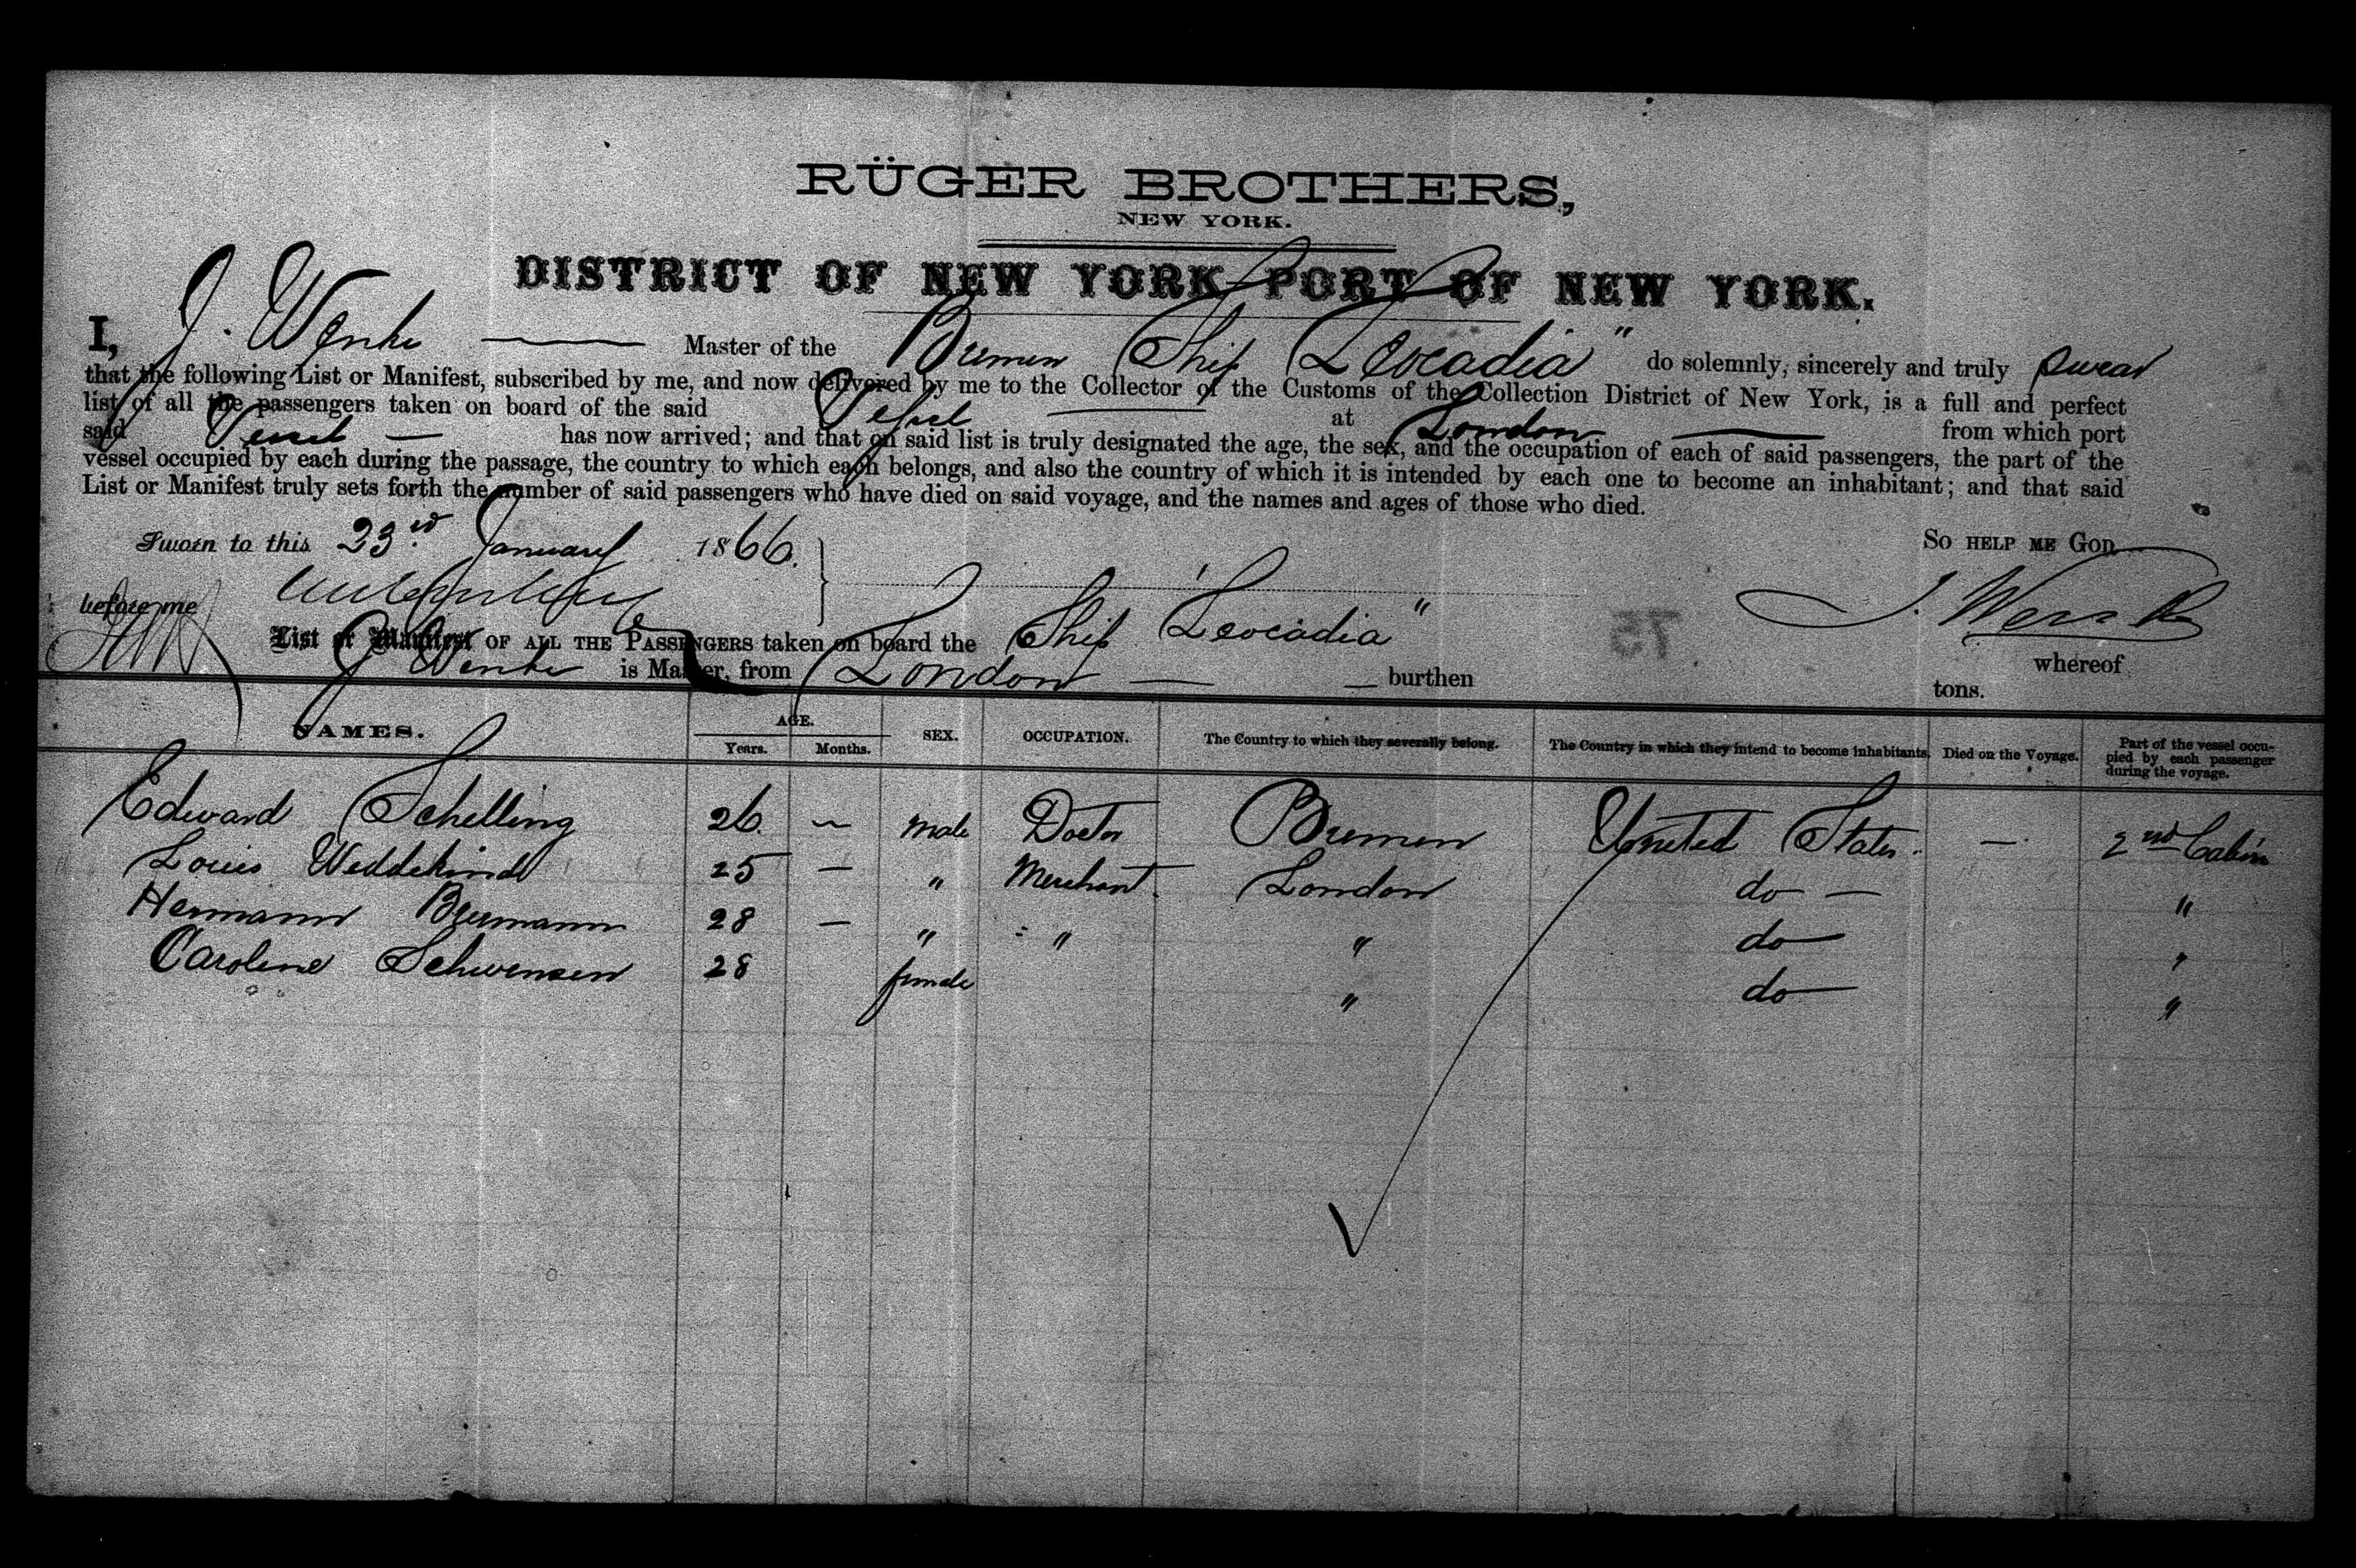 RÜGER BROTHERS,
NEW YORK.
DISTRICT OF NEW YORK PORT OF NEW YORK.
I, J. Wenke Master of the Bremen Ship Leocadia" do solemnly, sincerely and truly swear
that the following List or Manifest, subscribed by me, and now delivered by me to the Collector of the Customs of the Collection District of New York, is a full and perfect
list of all the passengers taken on board of the said Vessel at London from which port
said Vessel — has now arrived; and that on said list is truly designated the age, the sex, and the occupation of each of said passengers, the part of the
vessel occupied by each during the passage, the country to which each belongs, and also the country of which it is intended by each one to become an inhabitant; and that said
List or Manifest truly sets forth the number of said passengers who have died on said voyage, and the names and ages of those who died.
Sworn to this 23rd January 1866. So HELP ME GOD
before me J. Wenke
List or Manifest OF ALL THE PASSENGERS taken on board the Ship "Leocadia" whereof
J Wenke is Master, from London — burthen tons.
75
NAMES. AGE. Years. Months. SEX. OCCUPATION. The Country to which they severally belong. The Country in which they intend to become inhabitants. Died on the Voyage. Part of the vessel occu-
pied by each passenger
during the voyage.
Edward Schelling 26. — male Doctor Bremen United States. — 2nd Cabin
Louis Weddekind 25 — " Merchant. London do — "
Hermann 28 — " " " do "
Caroline Schwensen 28 female " do "